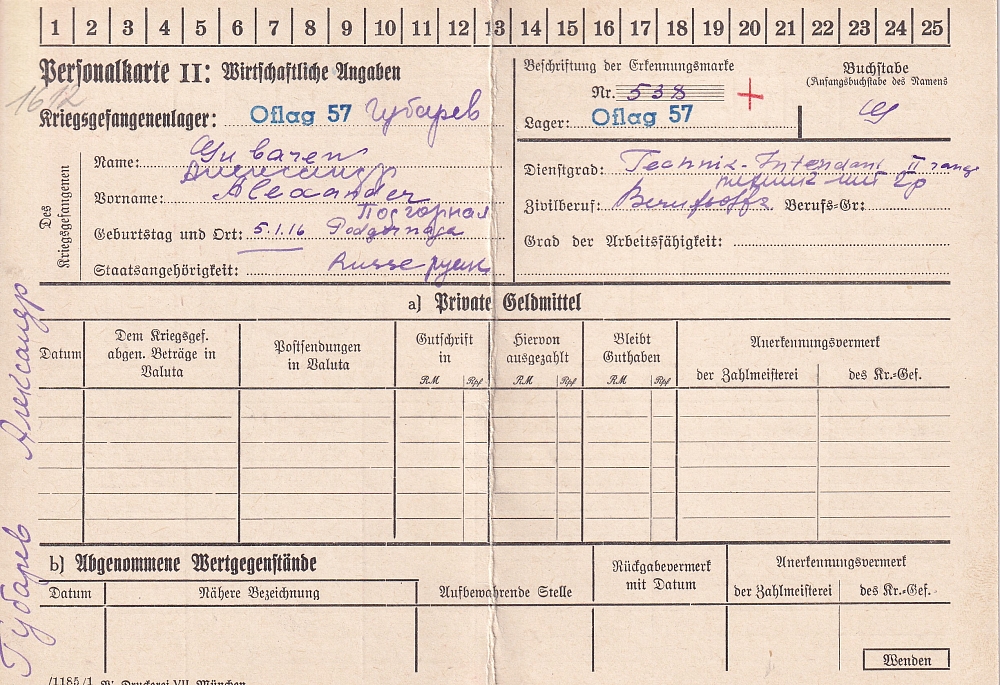 1 2 3 4 5 6 7 8 9 10 11 12 13 14 15 16 17 18 19 20 21 22 23 24 25
Personalkarte II: Wirtschaftliche Angaben
1612
Kriegsgefangenenlager: Oflag 57 Губарев
Beschriftung der Erkennungsmarke
Nr. 538
Lager: Oflag 57
Buchstabe
(Anfangsbuchstabe des Namens
G
Des Kriegsgefangenen
Name: Gubarew
Александр
Vorname: Alexander
Погорная
Geburtstag und Ort: 5.1.16 Podgornaja
Staatsangehörigkeit: Russe русс
Dienstgrad: Technik-Intendant II ranga
техник инт 2р
Zivilberuf: Berufsoffz. Berufs-Gr:
Grad der Arbeitsfähigkeit:
a) Private Geldmittel
Datum
Dem Kriegsgef. abgen. Beträge in Valuta
Postsendungen in Valuta
Gutschrift in
RM Rpf
Hiervon ausgezahlt
RM Rpf
Bleibt Guthaben
RM Rpf
Anerkennungsvermerk
der Zahlmeisterei
des Kr.-Gef.
b) Abgenommene Wertgegenstände
Datum
Nähere Bezeichnung
Aufbewahrende Stelle
Rückgabevermerk mit Datum
Anerkennungsvermerk
der Zahlmeisterei
des Kr.-Gef.
Wenden
/1185/1 Druckerei VII, München
Губарев Александр